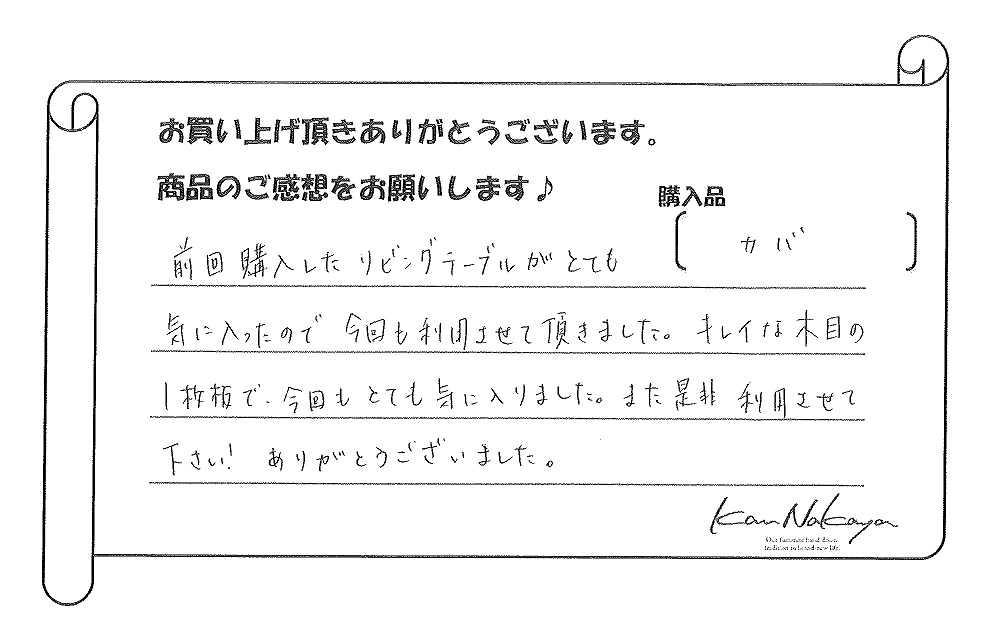 お買い上げ頂きありがとうございます。
商品のご感想をお願いします♪
購入品
カバ
前回購入したリビングテーブルがとても
気に入ったので 今回も利用させて頂きました。キレイな木目の
1枚板で、今回もとても気に入りました。また是非 利用させて
下さい! ありがとうございました。
Kan Nakaya
Our furniture hand down
tradition to brand-new life.